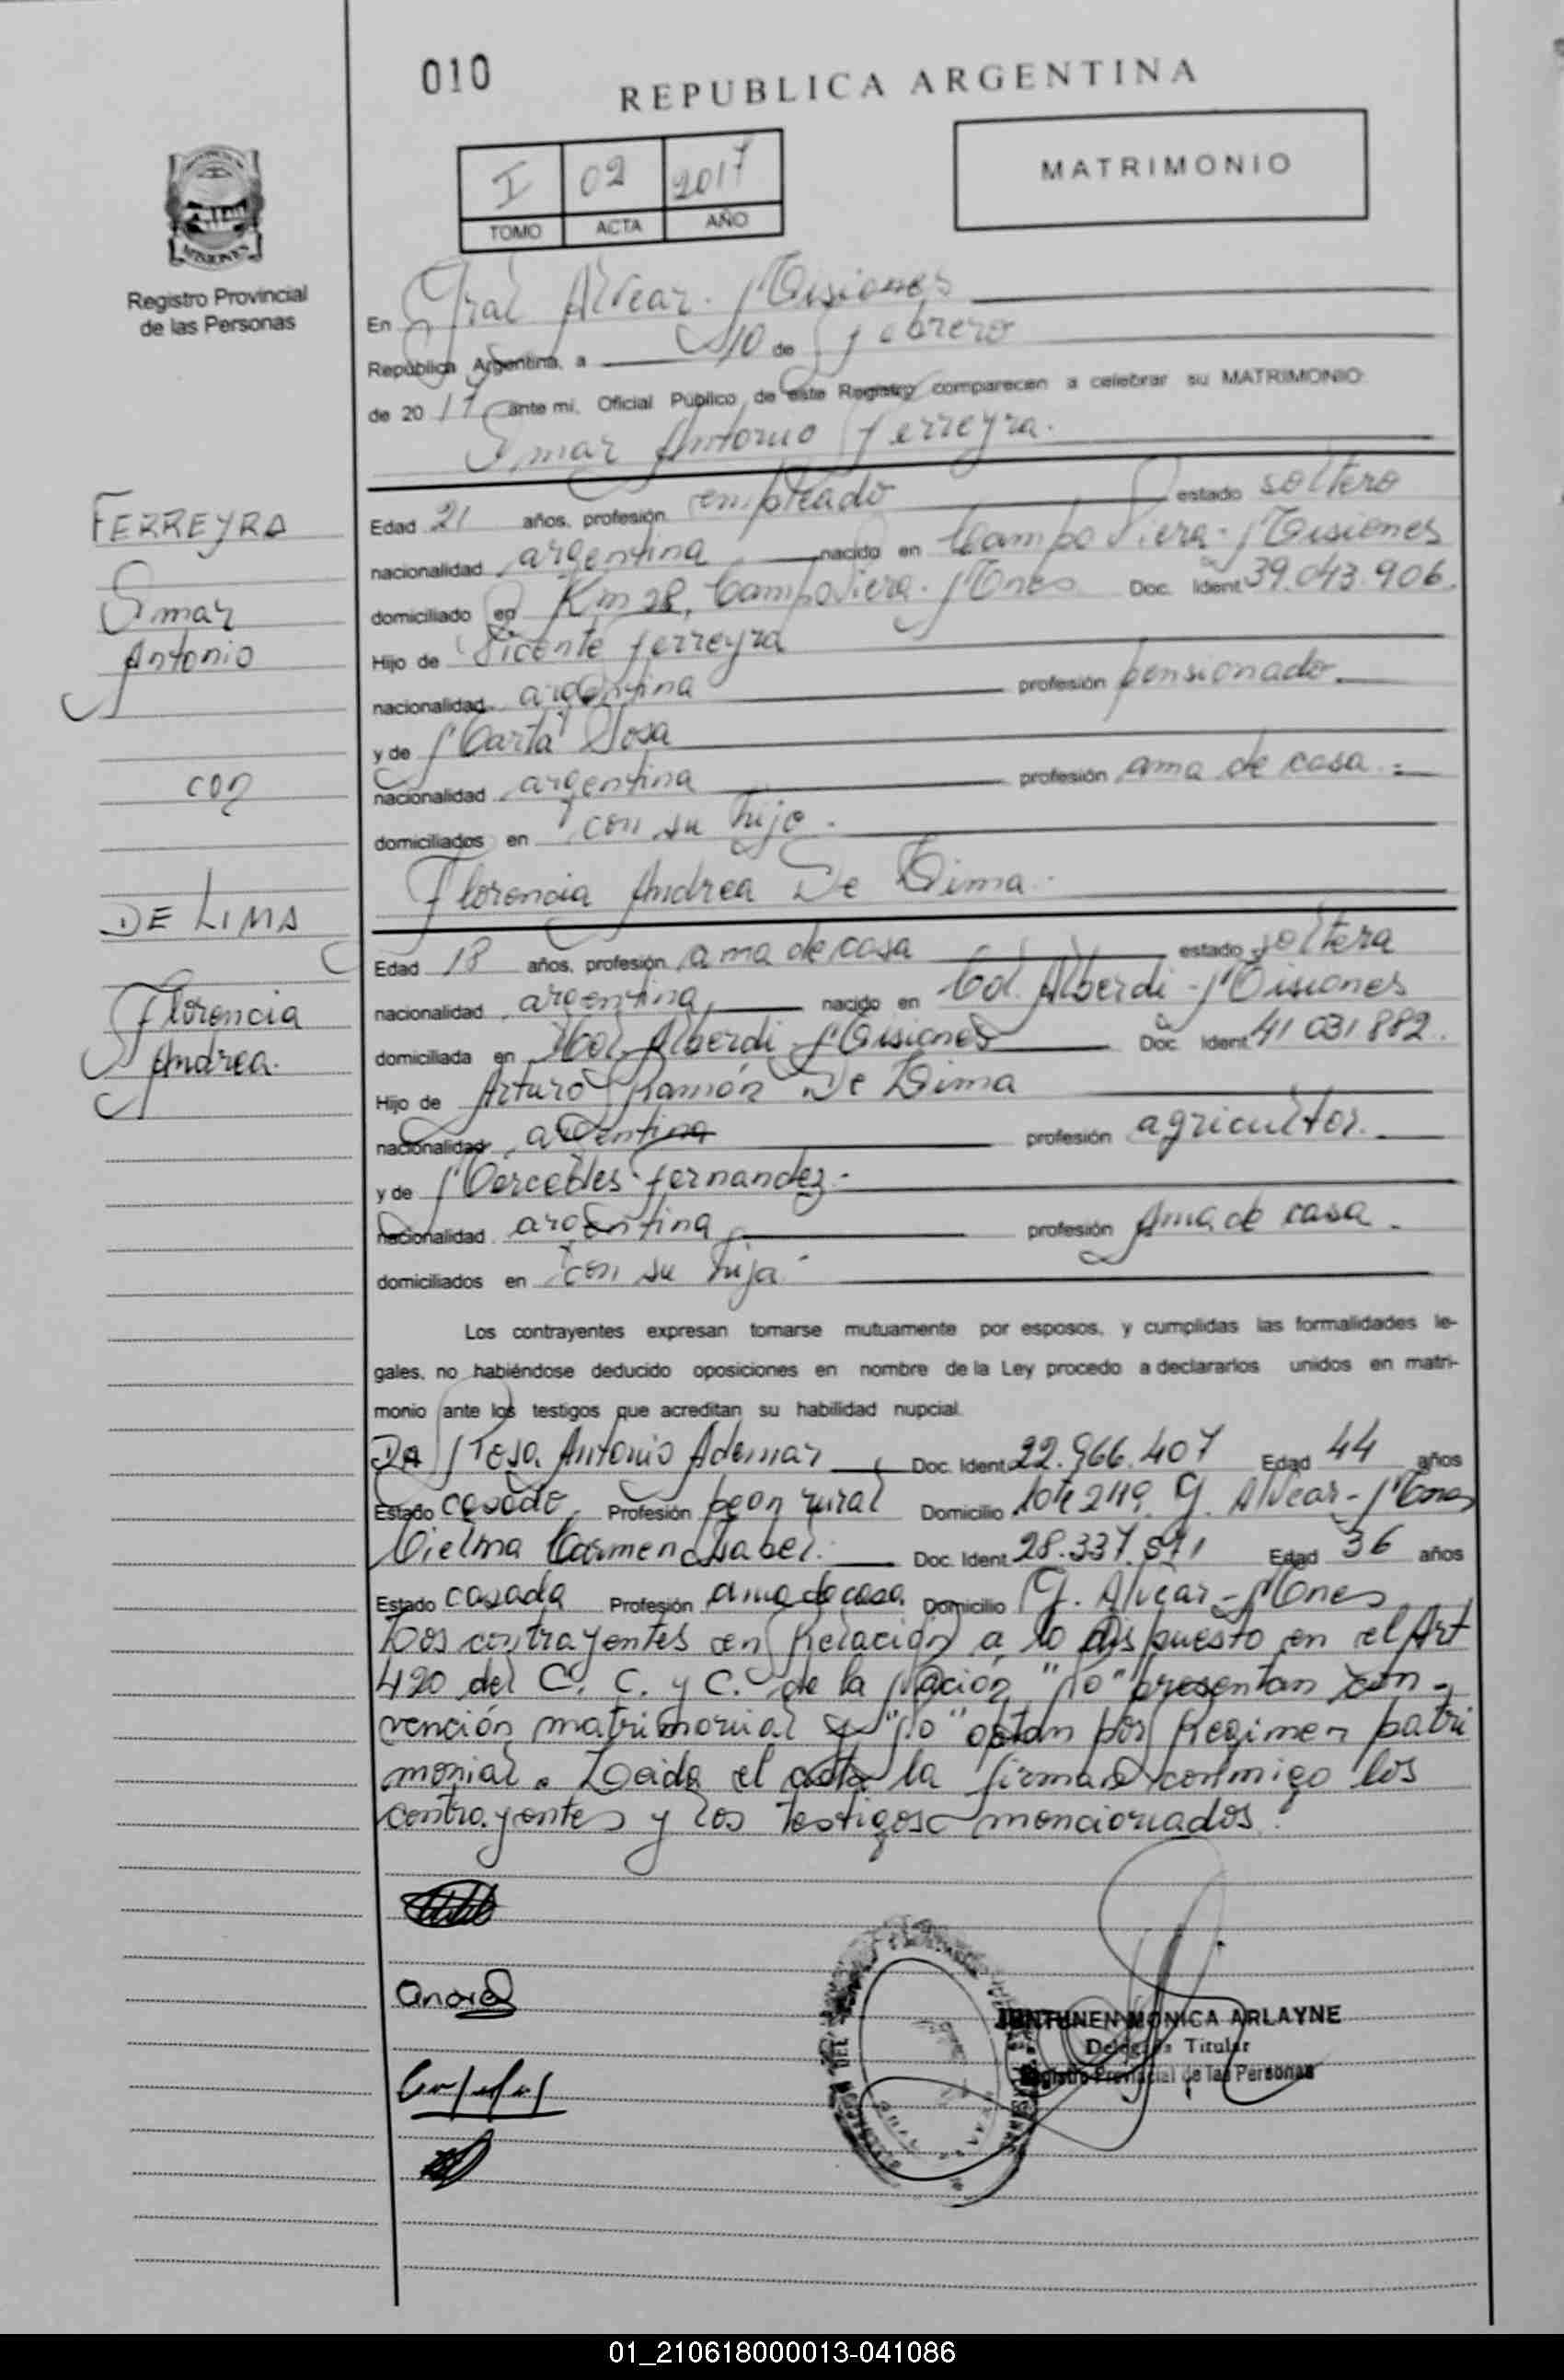 010
REPUBLICA ARGENTINA
I 02 2017
TOMO ACTA AÑO
MATRIMONIO
MISIONES
Registro Provincial
de las Personas
En Gral Alvear. Misiones
República Argentina, a 10 de febrero
de 2017 ante mi, Oficial Público de este Registro comparecen a celebrar su MATRIMONIO:
Omar Antonio Ferreyra.
FERREYRA
Omar
Antonio
con
DE LIMA
Florencia
Andrea.
Edad 21 años, profesión empleado estado soltero
nacionalidad argentina nacido en Campo Viera - Misiones
domiciliado en Km 28, Campo Viera. Mnes Doc. Ident. 39.043.906.
Hijo de Vicente Ferreyra
nacionalidad argentina profesión pensionado.
y de Marta Sosa
nacionalidad argentina profesión ama de casa.=
domiciliados en con su hijo.
Florencia Andrea De Lima.
Edad 18 años, profesión ama de casa estado soltera
nacionalidad argentina, nacido en Col. Alberdi - Misiones
domiciliada en Col. Alberdi - Misiones Doc. Ident. 41 031 882.
Hijo de Arturo Ramón De Lima
nacionalidad argentina profesión agricultor.
y de Mercedes Fernandez.
nacionalidad argentina profesión Ama de casa.
domiciliados en con su hija.
Los contrayentes expresan tomarse mutuamente por esposos, y cumplidas las formalidades le-
gales, no habiéndose deducido oposiciones en nombre de la Ley procedo a declararlos unidos en matri-
monio ante los testigos que acreditan su habilidad nupcial.
DA Rosa, Antonio Ademar Doc. Ident. 22.966.407 Edad 44 años
Estado casado, Profesión peon rural Domicilio lote 249. G. Alvear - Mnes
Vielma Carmen Isabel. Doc. Ident. 28.337.571 Edad 36 años
Estado casada Profesión ama de casa. Domicilio G. Alvear - Mnes
Los contrayentes en Relación a lo dispuesto en el Art
420 del C. C. y C. de la Nación "No" presentan con-
vención matrimonial y "No" optan por Regimen patri
monial. Leida el acta la firman conmigo los
contrayentes y los testigos mencionados.
JUNTUNEN MONICA ARLAYNE
Delegada Titular
Registro Provincial de las Personas
01_210618000013-041086